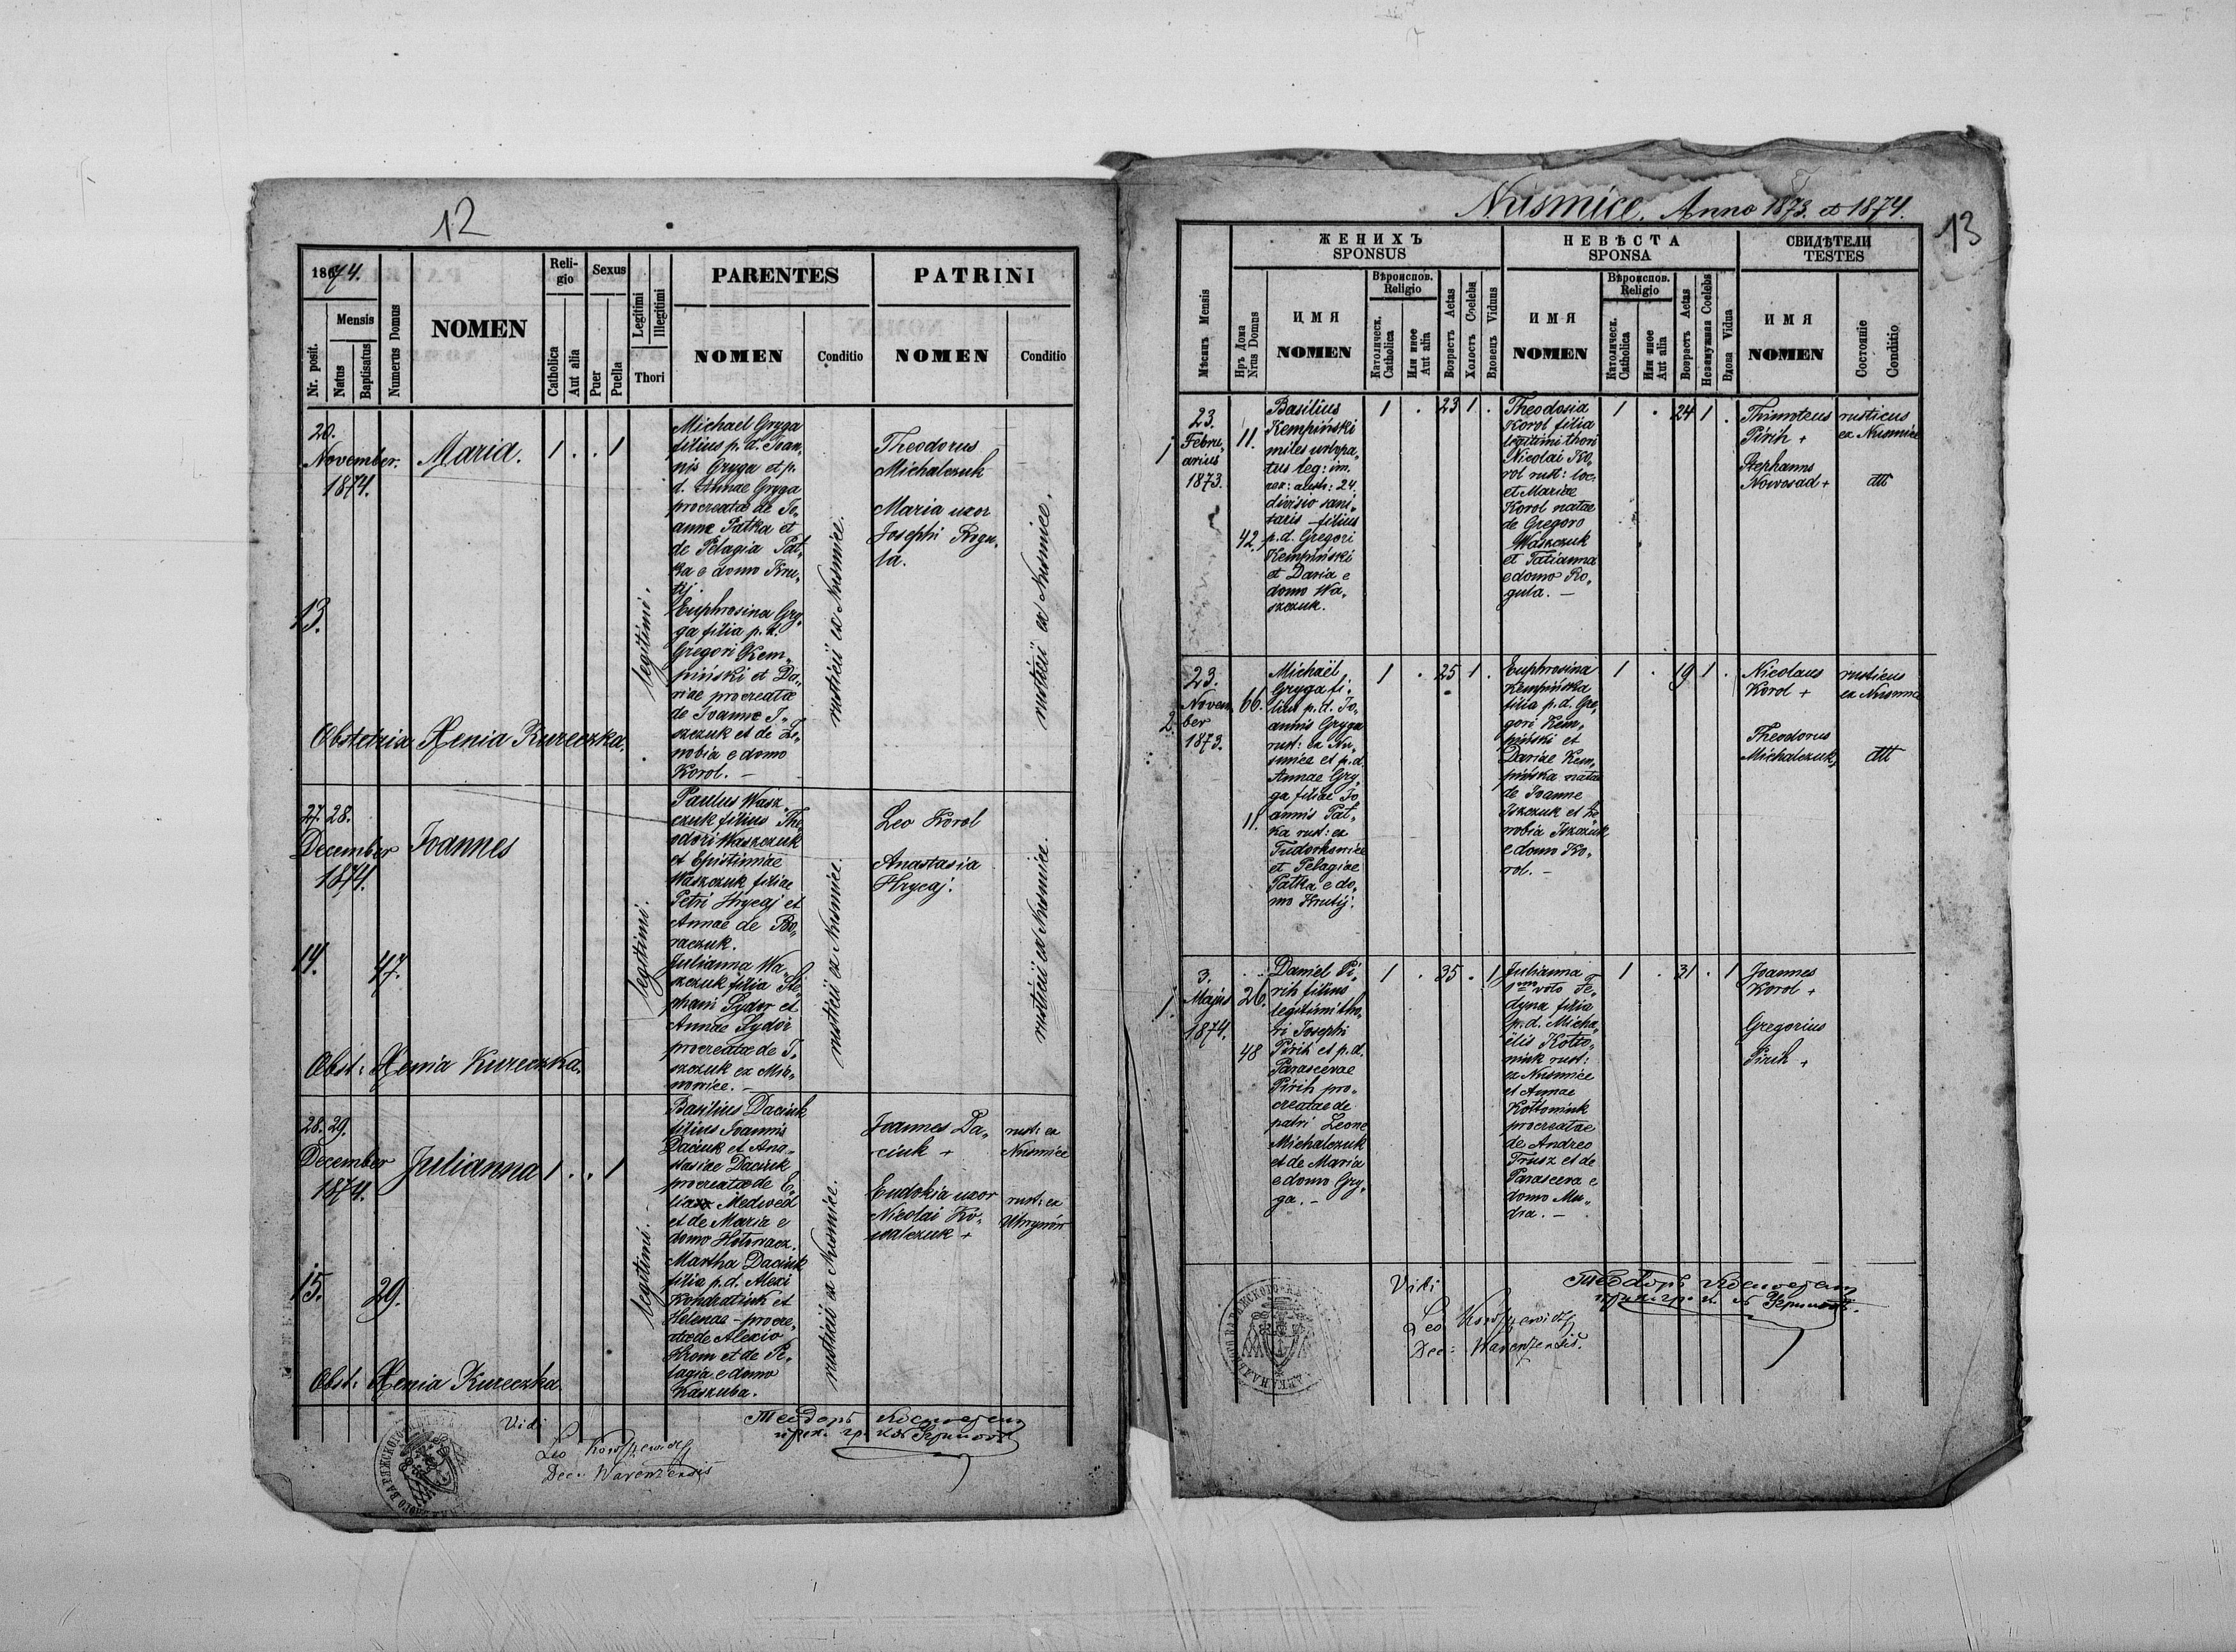 12
1874.
Nr. posit.
Mensis
Natus
Baptisatus
Numerus Domus
NOMEN
Reli-
gio
Catholica
Aut alia
Sexus
Puer
Puella
Legitimi
Illegitimi
Thori
PARENTES
NOMEN
Conditio
PATRINI
NOMEN
Conditio
13.
20.
November.
1874.
Maria.
1 . . 1
legitimi.
Michael Gryga
filius p. d. Joan„
nis Gryga et p.
d. Annae Gryga
procreata de Jo„
anne Patka et
de Pelagia Pat„
ka e domo Kru„
tij.
Euphrosina Gry„
ga filia p. d.
Gregori Kem„
piński et Da„
riae procreatae
de Joanne I„
szczuk et de Ze„
nobia e domo
Korol. –
rusticii ex Nusmice.
Theodorus
Michalczuk
Maria uxor
Josephi Rogu„
la.
rusticii ex Nusmice.
Obstetrix Xenia Kureczka.
14.
27. 28.
December
1874.
47.
Joannes
legitimi.
Paulus Wasz„
czuk filius The„
odori Waszczuk
et Epistimiae
Waszczuk filiae
Petri Hrycaj et
Annae de Bo„
raczuk.
Julianna Wa„
szczuk filia Ste„
phani Sydor et
Annae Sydor
procreatae de I„
szczuk ex
rusticii ex Nusmice.
Leo Korol
Anastasia
Hrycaj.
rusticii ex Nusmice.
Obst: Xenia Kureczka.
15.
28. 29.
December
1874.
29.
Julianna
1 . . 1
legitimi.
Basilius Daciuk
filius Joannis
Daciuk et Ana„
stasiae Daciuk
procreatae de E„
Medwed
et de Maria e
domo
Martha Daciuk
filia p. d. Alexi
Kondratiuk et
Helenae – procre„
atae de Alexio
Krom et de Pe„
lagia e domo
Kaszuba.
rusticii ex Nusmice.
Joannes Da„
ciuk +
rust: ex
Nusmice
Eudokia uxor
Nicolai Ko„
walczuk +
rust: ex
Uhrynów
Obst: Xenia Kureczka.
Vidi
Leo
Dec: Warenzensis
Теодоръ
Nusmice. Anno 1873. et 1874.
13
Мѣсяцъ Mensis
Нръ Дома
Nrus Domus
ЖЕНИХЪ
SPONSUS
ИМЯ
NOMEN
Вѣроиспов.
Religio
Католическ.
Catholica
Или иное
Aut alia
Возрастъ Aetas
Холостъ Coelebs
Вдовецъ Viduus
НЕВѢСТА
SPONSA
ИМЯ
NOMEN
Вѣроиспов.
Religio
Католическ.
Catholica
Или иное
Aut alia
Возрастъ Aetas
Незамужная Coelebs
Вдова Vidua
СВИДѢТЕЛИ
TESTES
ИМЯ
NOMEN
Состояніе
Conditio
1
23.
Febru„
arius
1873.
11.
42.
Basilius
Kempiński
miles urlopa„
tus leg: im.
rex: austr: 24.
divisio sani„
taris – filius
p. d. Gregori
Kempiński
et Daria e
domo Wa„
szczuk.
1 . 23 1 .
Theodosia
Korol filia
legitimi thori
Nicolai Ko„
rol rust: loc:
et Mariae
Korol natae
de Gregoro
Waszczuk
et Tatianna
e domo Ro„
gula. –
1 . 24 1 .
Thimoteus
Pirih +
rusticus
ex Nusmice
Stephanus
Nowosad +
dtt
2.
23.
Novem„
ber
1873.
66.
11.
Michaël
Gryga fi„
lius p. d. Jo„
annis Gryga
rust: ex Nu„
smice et p. d.
Annae Gry„
ga filiae Jo„
annis Pat„
ka rust: ex
Tudorkowice
et Pelagiae
Patka e do„
mo Krutij.
1 . 25 1 .
Euphrosina
Kempińska
filia p. d. Gre„
gori Kem„
piński et
Dariae Kem„
pińska natae
de Joanne
Iszczuk et Ze„
nobia Iszczuk
e domo Ko„
rol. –
1 . 19 1 .
Nicolaus
Korol +
rusticus
ex Nusmice
Theodorus
Michalczuk,
dtt
1.
3.
Majus
1874.
26.
48
Daniel Pi„
rih filius
legitimi tho„
ri Josephi
Pirih et p. d.
Parascevae
Pirih pro„
creatae de
patri Leone
Michalczuk
et de Maria
e domo Gry„
ga. –
1 . 35 . 1
Julianna
1mo voto Fe„
dyna filia
p. d. Micha„
ëlis Kotto„
niuk rust:
ex Nusmice
et Annae
Kottoniuk
procreatae
de Andreo
Trusz et de
Parasceva e
domo Mu„
dra. –
1 . 31 . 1
Joannes
Korol +
Gregorius
Pirih +
Vidi
Leo
Dec: Warenzensis.
Теодоръ